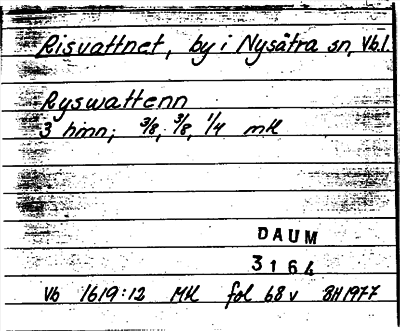 Risvattnet, by i Nysätra sn, Vb.l.
Ryswattenn
3 hmn; 3/8, 3/8, 1/4 mk
DAUM
3164
Vb 1619:12 MK fol 68v BH1977